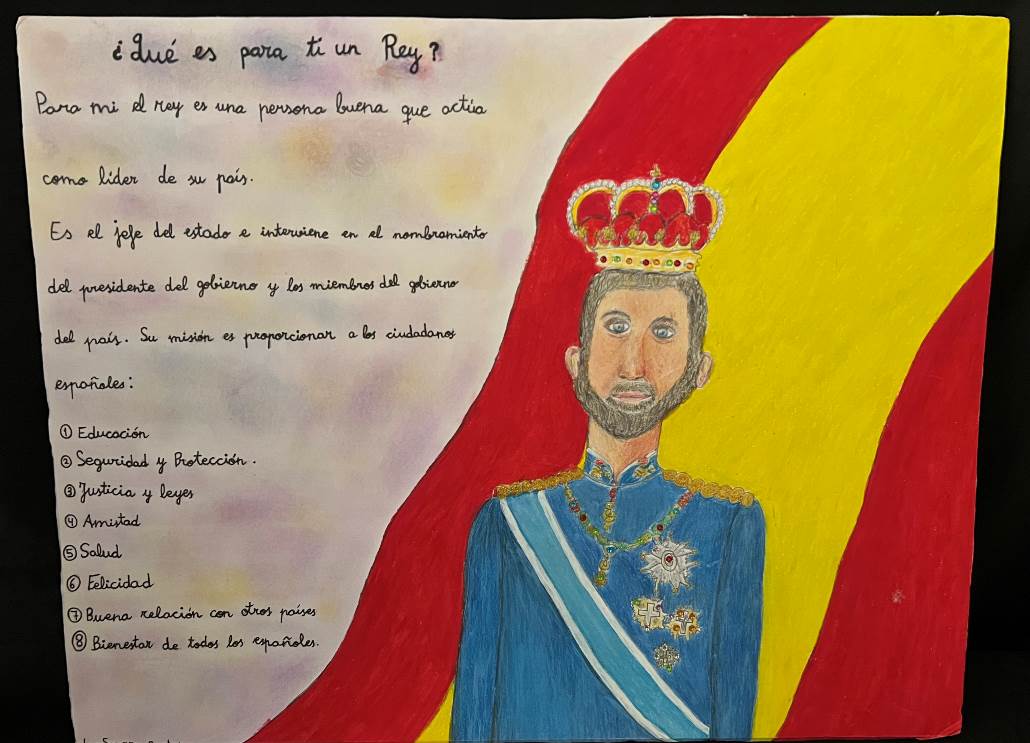 ¿Qué es para ti un Rey?
Para mi el rey es una persona buena que actúa
como lider de su país.
Es el jefe del estado e interviene en el nombramiento
del presidente del gobierno y los miembros del gobierno
del país. Su misión es proporcionar a los ciudadanos
españoles:
① Educación
② Seguridad y Protección.
③ Justicia y leyes
④ Amistad
⑤ Salud
⑥ Felicidad
⑦ Buena relación con otros países
⑧ Bienestar de todos los españoles.